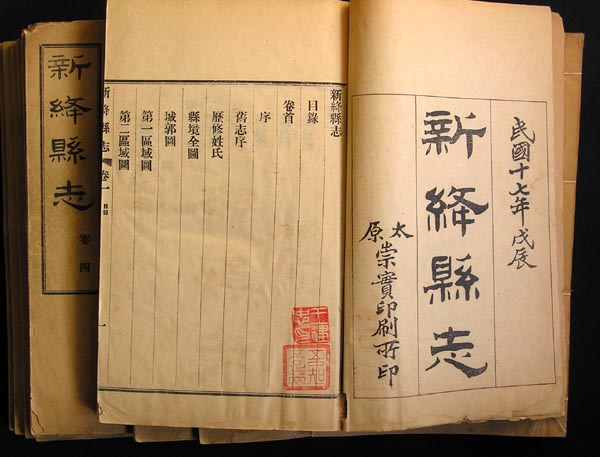 民國十七年戊辰
新絳縣志
太原崇實印刷所印
新絳縣志
目錄
卷首
序
舊志序
歷修姓氏
縣境全圖
城郭圖
第一區域圖
第二區域圖
新絳縣志 卷一 目錄 一
新絳縣志 卷四